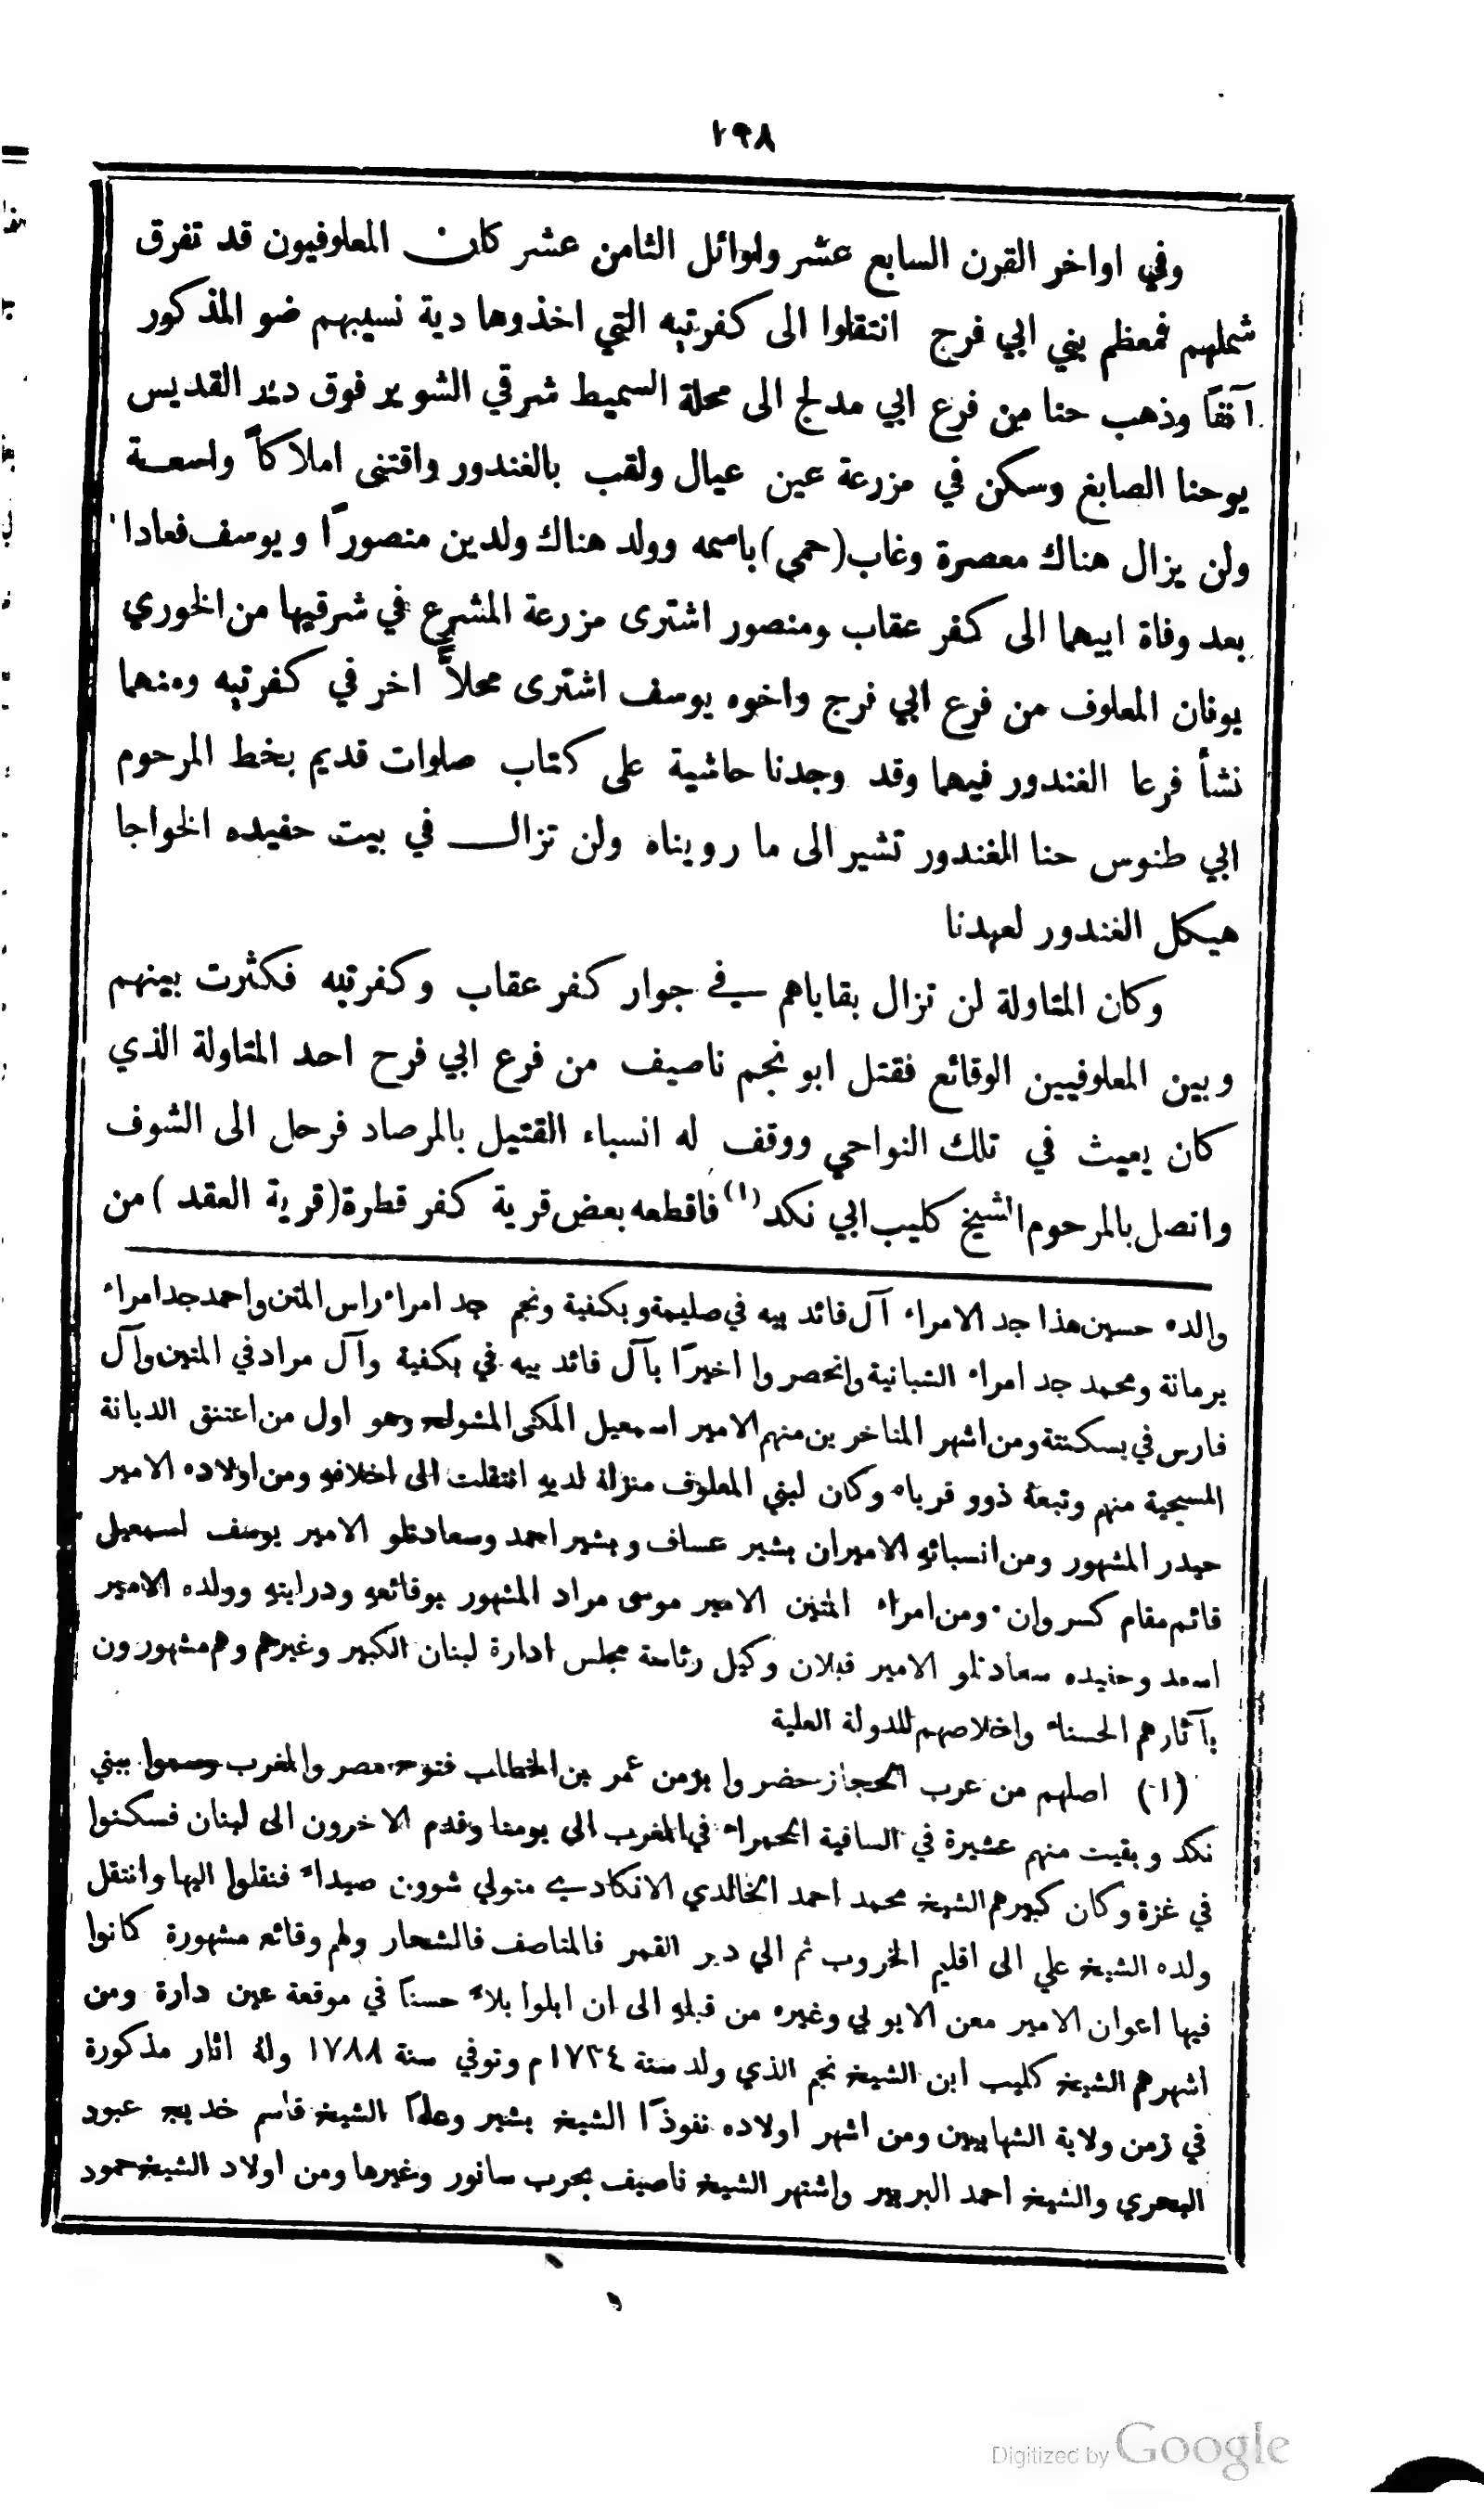 ١٩٨
وفي اواخر القرن السابع عشر واوائل الثامن عشر كان المعلوفيون قد تفرق
شملهم فمعظم بني ابي فرج انتقلوا الى كفرتيه التي اخذوها دية نسيبهم ضو المذكور
آنفًا وذهب حنا من فرع ابي مدلج الى محلة السميط شرقي الشوير فوق دير القديس
يوحنا الصابغ وسكن في مزرعة عين عيال ولقب بالغندور واقتنى املاكًا واسعة
ولن يزال هناك معصرة وغاب (حمى) باسمه وولد هناك ولدين منصورًا ويوسف فعادا
بعد وفاة ابيهما الى كفر عقاب ومنصور اشترى مزرعة المشرع في شرقيها من الخوري
يونان المعلوف من فرع ابي فرج واخوه يوسف اشترى محلاً اخر في كفرتيه ومنهما
نشأ فرعا الغندور فيهما وقد وجدنا حاشية على كتاب صلوات قديم بخط المرحوم
ابي طنوس حنا الغندور تشير الى ما رويناه ولن تزال في بيت حفيده الخواجا
هيكل الغندور لعهدنا
وكان المتاولة لن تزال بقاياهم في جوار كفر عقاب وكفرتيه فكثرت بينهم
وبين المعلوفيين الوقائع فقتل ابو نجم ناصيف من فرع ابي فرح احد المتاولة الذي
كان يعيث في تلك النواحي ووقف له انسباء القتيل بالمرصاد فرحل الى الشوف
واتصل بالمرحوم الشيخ كليب ابي نكد (١) فاقطعه بعض قرية كفر قطرة (قرية العقد) من
والده حسين هذا جد الامراء آل قائد بيه في صليمة وبكفية ونجم جد امراء راس المتن واحمد جد امراء
برمانة ومحمد جد امراء الشبانية وانحصروا اخيرًا بآل قائد بيه في بكفية وآل مراد في المتين وآل
فارس في بسكنتة ومن اشهر المتاخرين منهم الامير اسمعيل المكنى المشولح وهو اول من اعتنق الديانة
المسيحية منهم وتبعهُ ذوو قرباه وكان لبني المعلوف منزلة لديهِ انتقلت الى اخلافهِ ومن اولاده الامير
حيدر المشهور ومن انسبائهِ الاميران بشير عساف وبشير احمد وسعادتلو الامير يوسف اسمعيل
قائم مقام كسروان. ومن امراء المتين الامير موسى مراد المشهور بوقائعهِ ودرايتهِ وولده الامير
اسعد وحفيده سعادتلو الامير قبلان وكيل رئاسة مجلس ادارة لبنان الكبير وغيرهم وهم مشهورون
بآثارهم الحسناء واخلاصهم للدولة العلية
(١) اصلهم من عرب الحجاز حضروا بزمن عمر بن الخطاب فتوح مصر والمغرب وسموا ببني
نكد وبقيت منهم عشيرة في الساقية الحمراء في المغرب الى يومنا وقدم الاخرون الى لبنان فسكنوا
في غزة وكان كبيرهم الشيخ محمد احمد الخالدي الانكادي متولي شوون صيداء فنقلوا اليها وانتقل
ولده الشيخ علي الى اقليم الخروب ثم الى دير القمر فالمناصف فالشحار ولهم وقائع مشهورة كانوا
فيها اعوان الامير معن الايوبي وغيره من قبلهِ الى ان ابلوا بلاءً حسنًا في موقعة عين دارة ومن
اشهرهم الشيخ كليب ابن الشيخ نجم الذي ولد سنة ١٧٢٤م وتوفي سنة ١٧٨٨ ولهُ اثار مذكورة
في زمن ولاية الشهابيين ومن اشهر اولاده نفوذًا الشيخ بشير وعلمًا الشيخ قاسم خديج عبود
البحري والشيخ احمد البربير واشتهر الشيخ ناصيف بحرب سانور وغيرها ومن اولاد الشيخ حمود
Digitized by Google